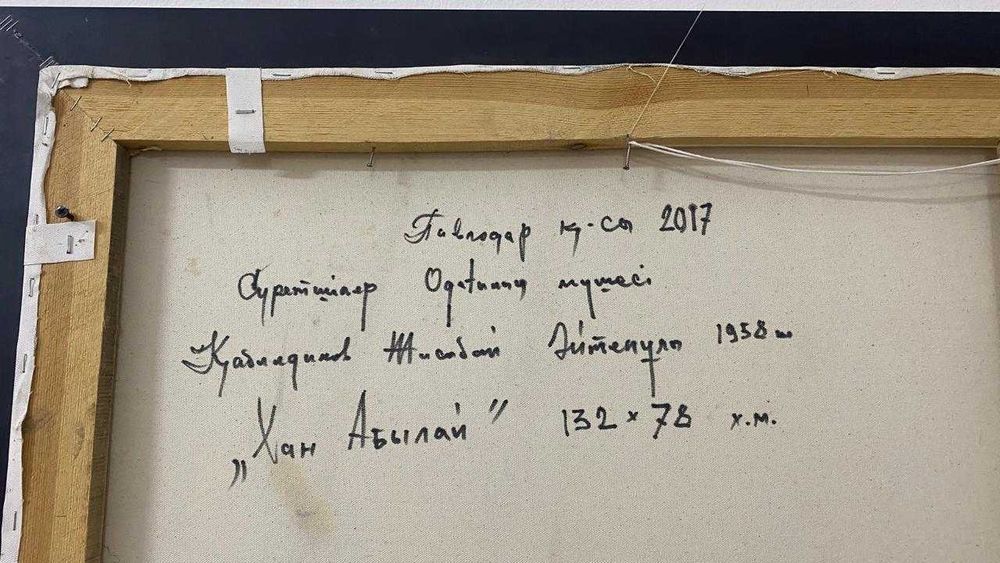 Павлодар қ-сы 2017
Суретшілер Одағының мүшесі
Қабылдинов Жисабай Әйтенұлы 1958 ж
„Хан Абылай” 132 х 78 х.м.